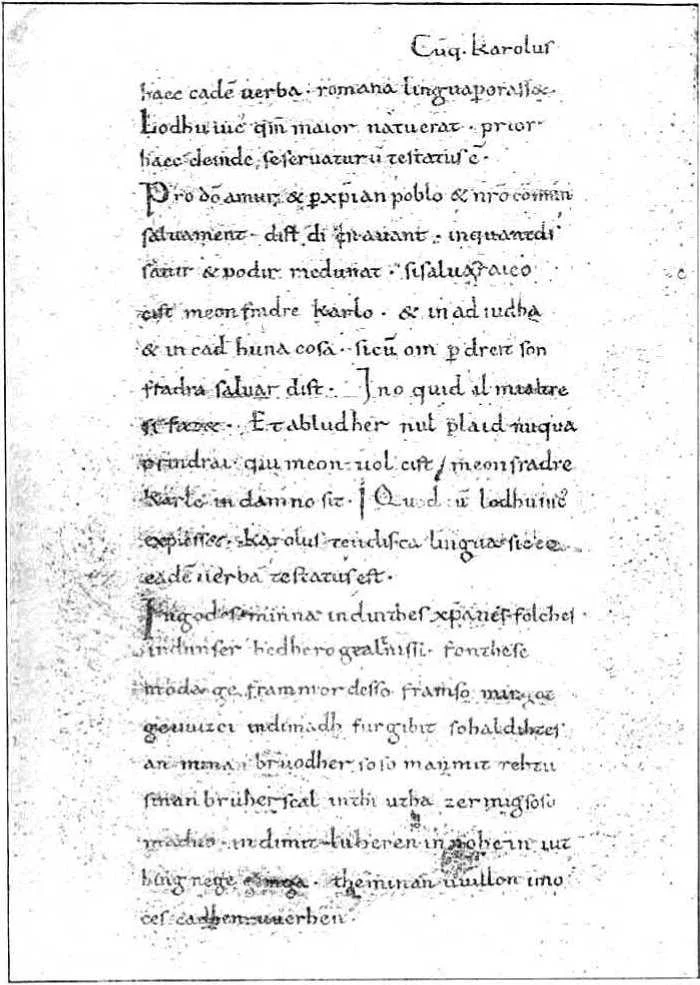 Cūq. karolus
haec eadē uerba. romana lingua porasset.
Lodhuuic qm̄ maior natu erat. prior
haec deinde se seruaturū testatus ē.
Pro dō amur & p xp̄ian poblo & nr̄o cōmun
saluament. dist di en auant. inquantds
sauir & podir medunat. sisaluaraieo
cist meon fradre karlo. & in ad iudha
& in cad huna cosa. sicū om p dreit son
fradra saluar dist. Ino quid il mi altre
si fazet. Et abludher nul plaid nūqua
prindrai qui meon uol cist meon fradre
karle in damno sit. Quod cū lodhuuic
explesset. karolus teudisca lingua sic
eadē uerba testatus est.
In godes minna induithes xp̄anes folches
indunser bedhero gealtnissi. fonthese
moda ge frammordesso framso mirgot
geuuizci indimadh furgibit sohaldihtes
an minan bruodher soso manmit rehtu
sinan bruher scal inthi utha zermigsoso
maduo. indimit luheren in nohein iut
hing nege ganga. theminan uuillon imo
ces cadhen uuerhen.